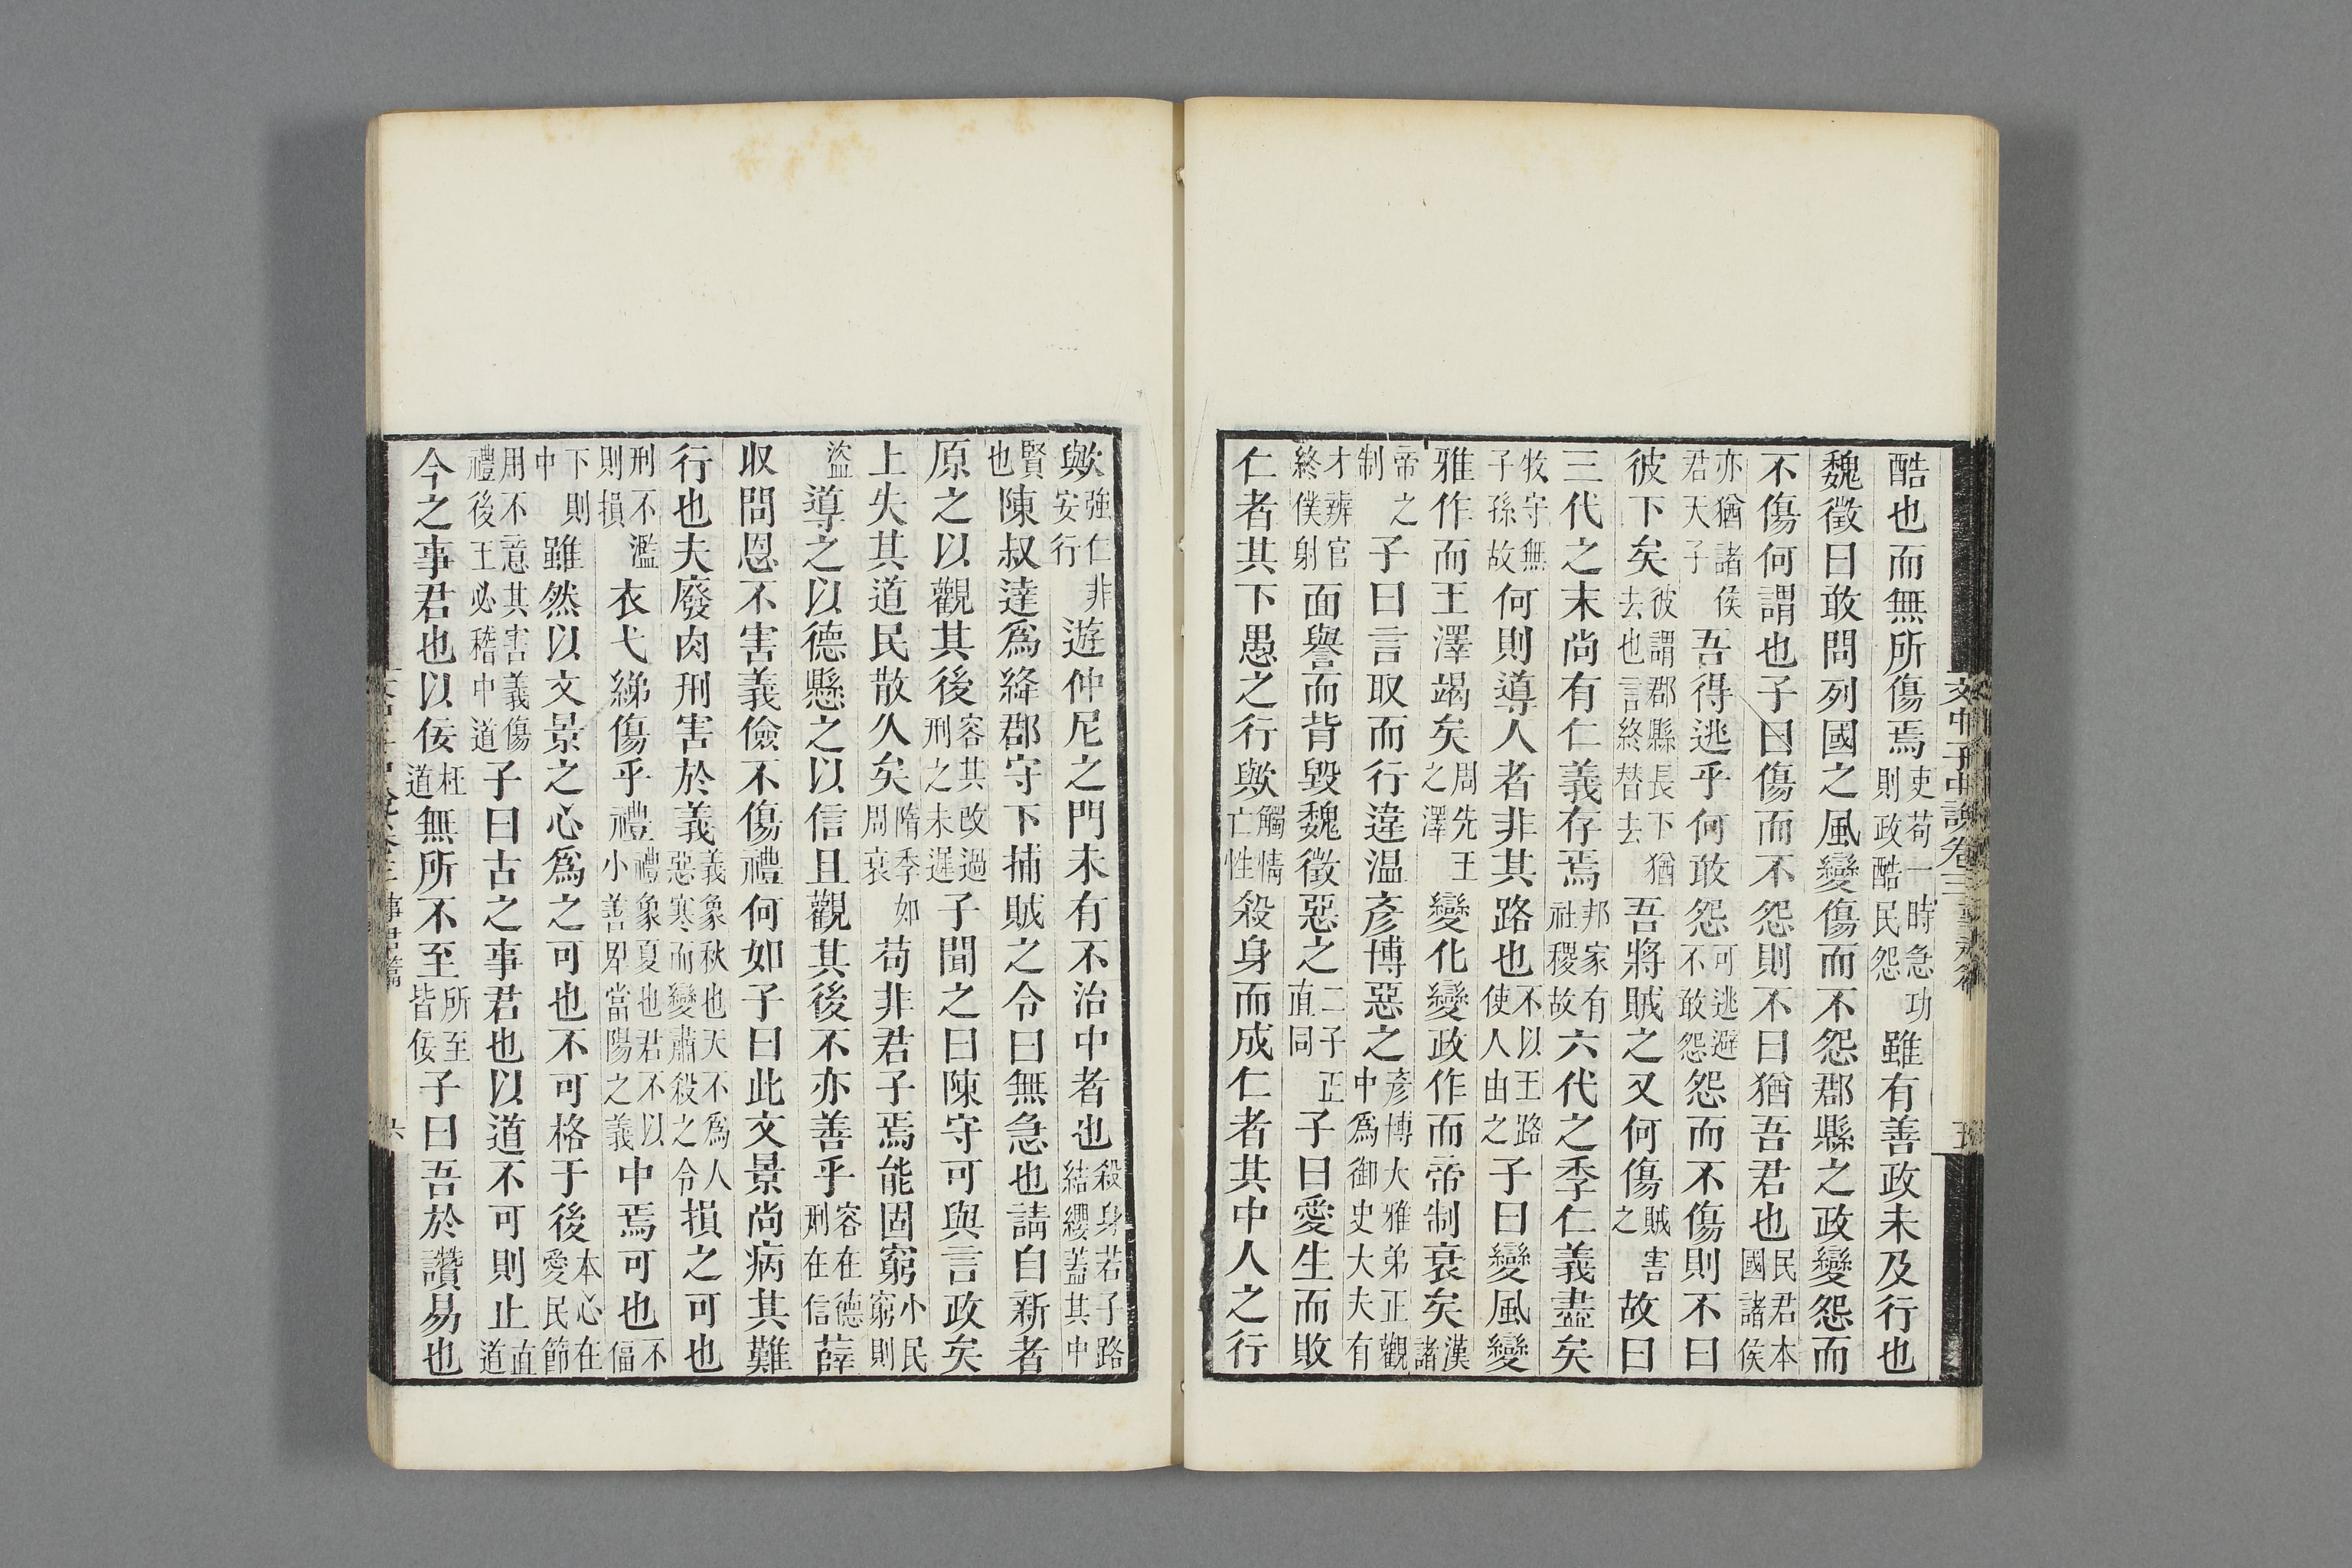 酷也而無所傷焉吏苟一時急功則政酷民怨雖有善政未及行也
魏徵曰敢問列國之風變傷而不怨郡縣之政變怨而
不傷何謂也子曰傷而不怨則不曰猶吾君也民君本國諸侯
亦猶諸侯君天子吾得逃乎何敢怨可逃避不敢怨怨而不傷則不曰
彼下矣彼謂郡縣長下猶去也言終替去吾將賊之又何傷賊害之故曰
三代之末尚有仁義存焉邦家有社稷故六代之季仁義盡矣
牧守無子孫故何則導人者非其路也不以王路使人由之子曰變風變
雅作而王澤竭矣周先王之澤變化變政作而帝制衰矣漢諸
帝之制子曰言取而行違温彥博惡之彥博大雅弟正觀中爲御史大夫有
才辨官終僕射面譽而背毀魏徵惡之二子正直同子曰愛生而敗
仁者其下愚之行歟觸情亡性殺身而成仁者其中人之行
文中子中說卷三
五
歟強仁非安行遊仲尼之門未有不治中者也殺身若子路結纓蓋其中
賢也陳叔達爲絳郡守下捕賊之令曰無急也請自新者
原之以觀其後容其改過刑之未遲子聞之曰陳守可與言政矣
上失其道民散久矣隋季如周衰苟非君子焉能固窮小民窮則
盜導之以德懸之以信且觀其後不亦善乎容在德刑在信薛
収問恩不害義儉不傷禮何如子曰此文景尚病其難
行也夫廢肉刑害於義義象秋也天不爲人惡寒而變肅殺之令損之可也
刑不濫則損衣弋綈傷乎禮禮象夏也君不以小善卑當陽之義中焉可也不偪
下則中雖然以文景之心爲之可也不可格于後本心在愛民節
用不意其害義傷禮後王必稽中道子曰古之事君也以道不可則止直道
今之事君也以佞枉道無所不至所至皆佞子曰吾於讚易也
事君篇
六